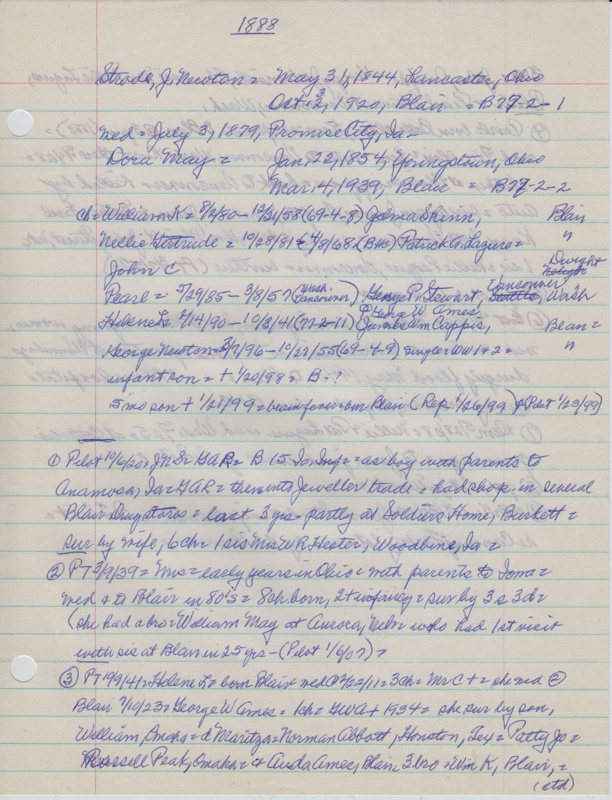 1888
Strode, J. Newton = May 31, 1844, Lancaster, Ohio
Oct 12, 1920, Blair = B27-2-1
med = July 3, 1879, Promise City, Ia =
Dora May = Jan. 22, 1854, Youngstown, Ohio
Mar. 4, 1939, Blair B27-2-2
ch = William K = 8/ /80 - 12/31/58 (69-4-8) Blair
Nellie Gertrude = 10/28/81 + 4/8/68 (B+C) Patrick A. Lazure = "
John C Dwight
Pearl = 5/29/85 - 3/8/57 (Wash. Vancouver) George P. Stewart, Vancouver Wash
Helene L = 7/14/90 - 10/8/41 (77-2-11) ① William Cappis, ② Geo W Ames Blair =
George Newton = 3/9/96 - 10/21/55 (69-4-9) single WW 1+2 = "
infant son = + 1/20/98 = B = ?
5 mo son + 1/21/99 = brain fever = bur Blair (Rep. 1/26/99) (Pilot 1/23/99)
① Pilot 10/6/20 = J N Sr GAR = B 15 Ia Inf = as boy with parents to
Anamosa, Ia = GAR = then into Jeweller trade + had shop in several
Blair Drug stores = last 3 yrs partly at Soldiers Home, Burkett =
sur by wife, 6 ch = 1 sis Mrs W R Hester, Woodbine, Ia =
② PT 3/9/39 = Mrs = early years in Ohio + with parents to Iowa =
med + to Blair in 80's = 8 ch born, 2 + infancy = sur by 3 s 3 d =
(she had a bro = William May at Aurora, Nebr who had 1st visit
with sis at Blair in 25 yrs - (Pilot 1/6/07) =
③ PT 10/9/41 = Helene L = born Blair = med ① 2/22/11 = 3 ch = Mr C + = she med ②
Blair 7/10/23 = George W Ames = 1 ch = GWA + 1934 = she sur by son,
William, Omaha = d Maritza = Norman Abbott, Houston, Tex = Patty Jo =
Russell Peak, Omaha = + Auda Ames, Blair 3 bro = Wm K, Blair, =
(ctd)